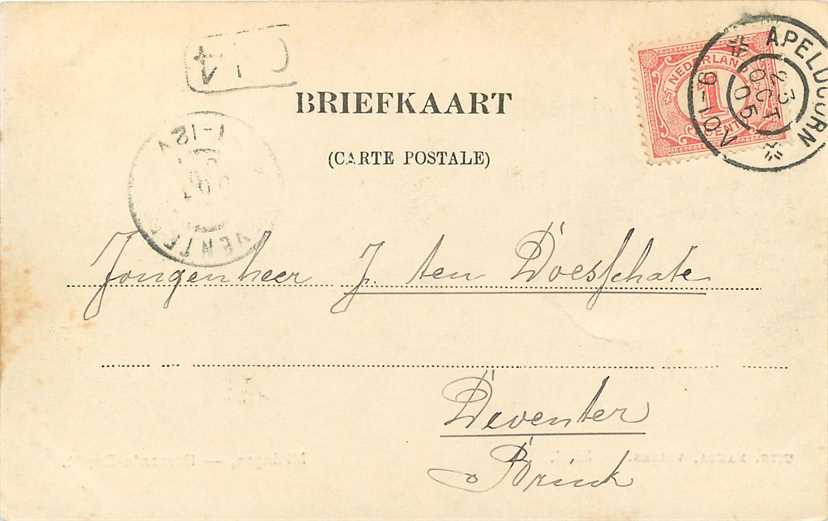 BRIEFKAART
(CARTE POSTALE)
NEDERLAND
1
CENT
APELDOORN
23
OCT
05
9-10N
1-12V
Jongenheer J. ten Doesschate
Deventer
Brink